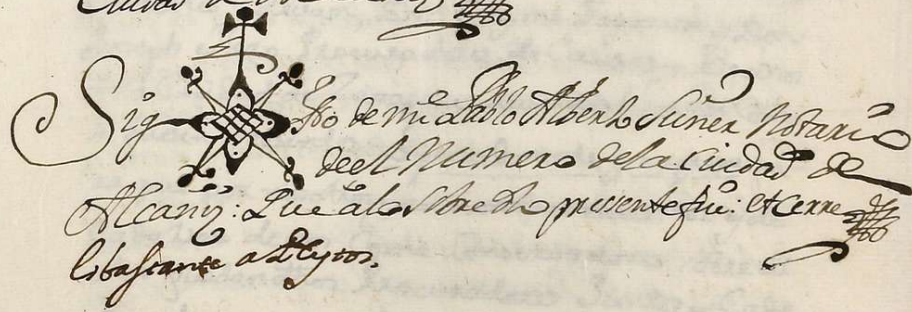 Ciudad de
Sig no de mi Pablo Alberto Suñer Notario
de el Numero de la Ciudad de
Alcañiz: Que a lo Sobre dho presente fui: et cerre